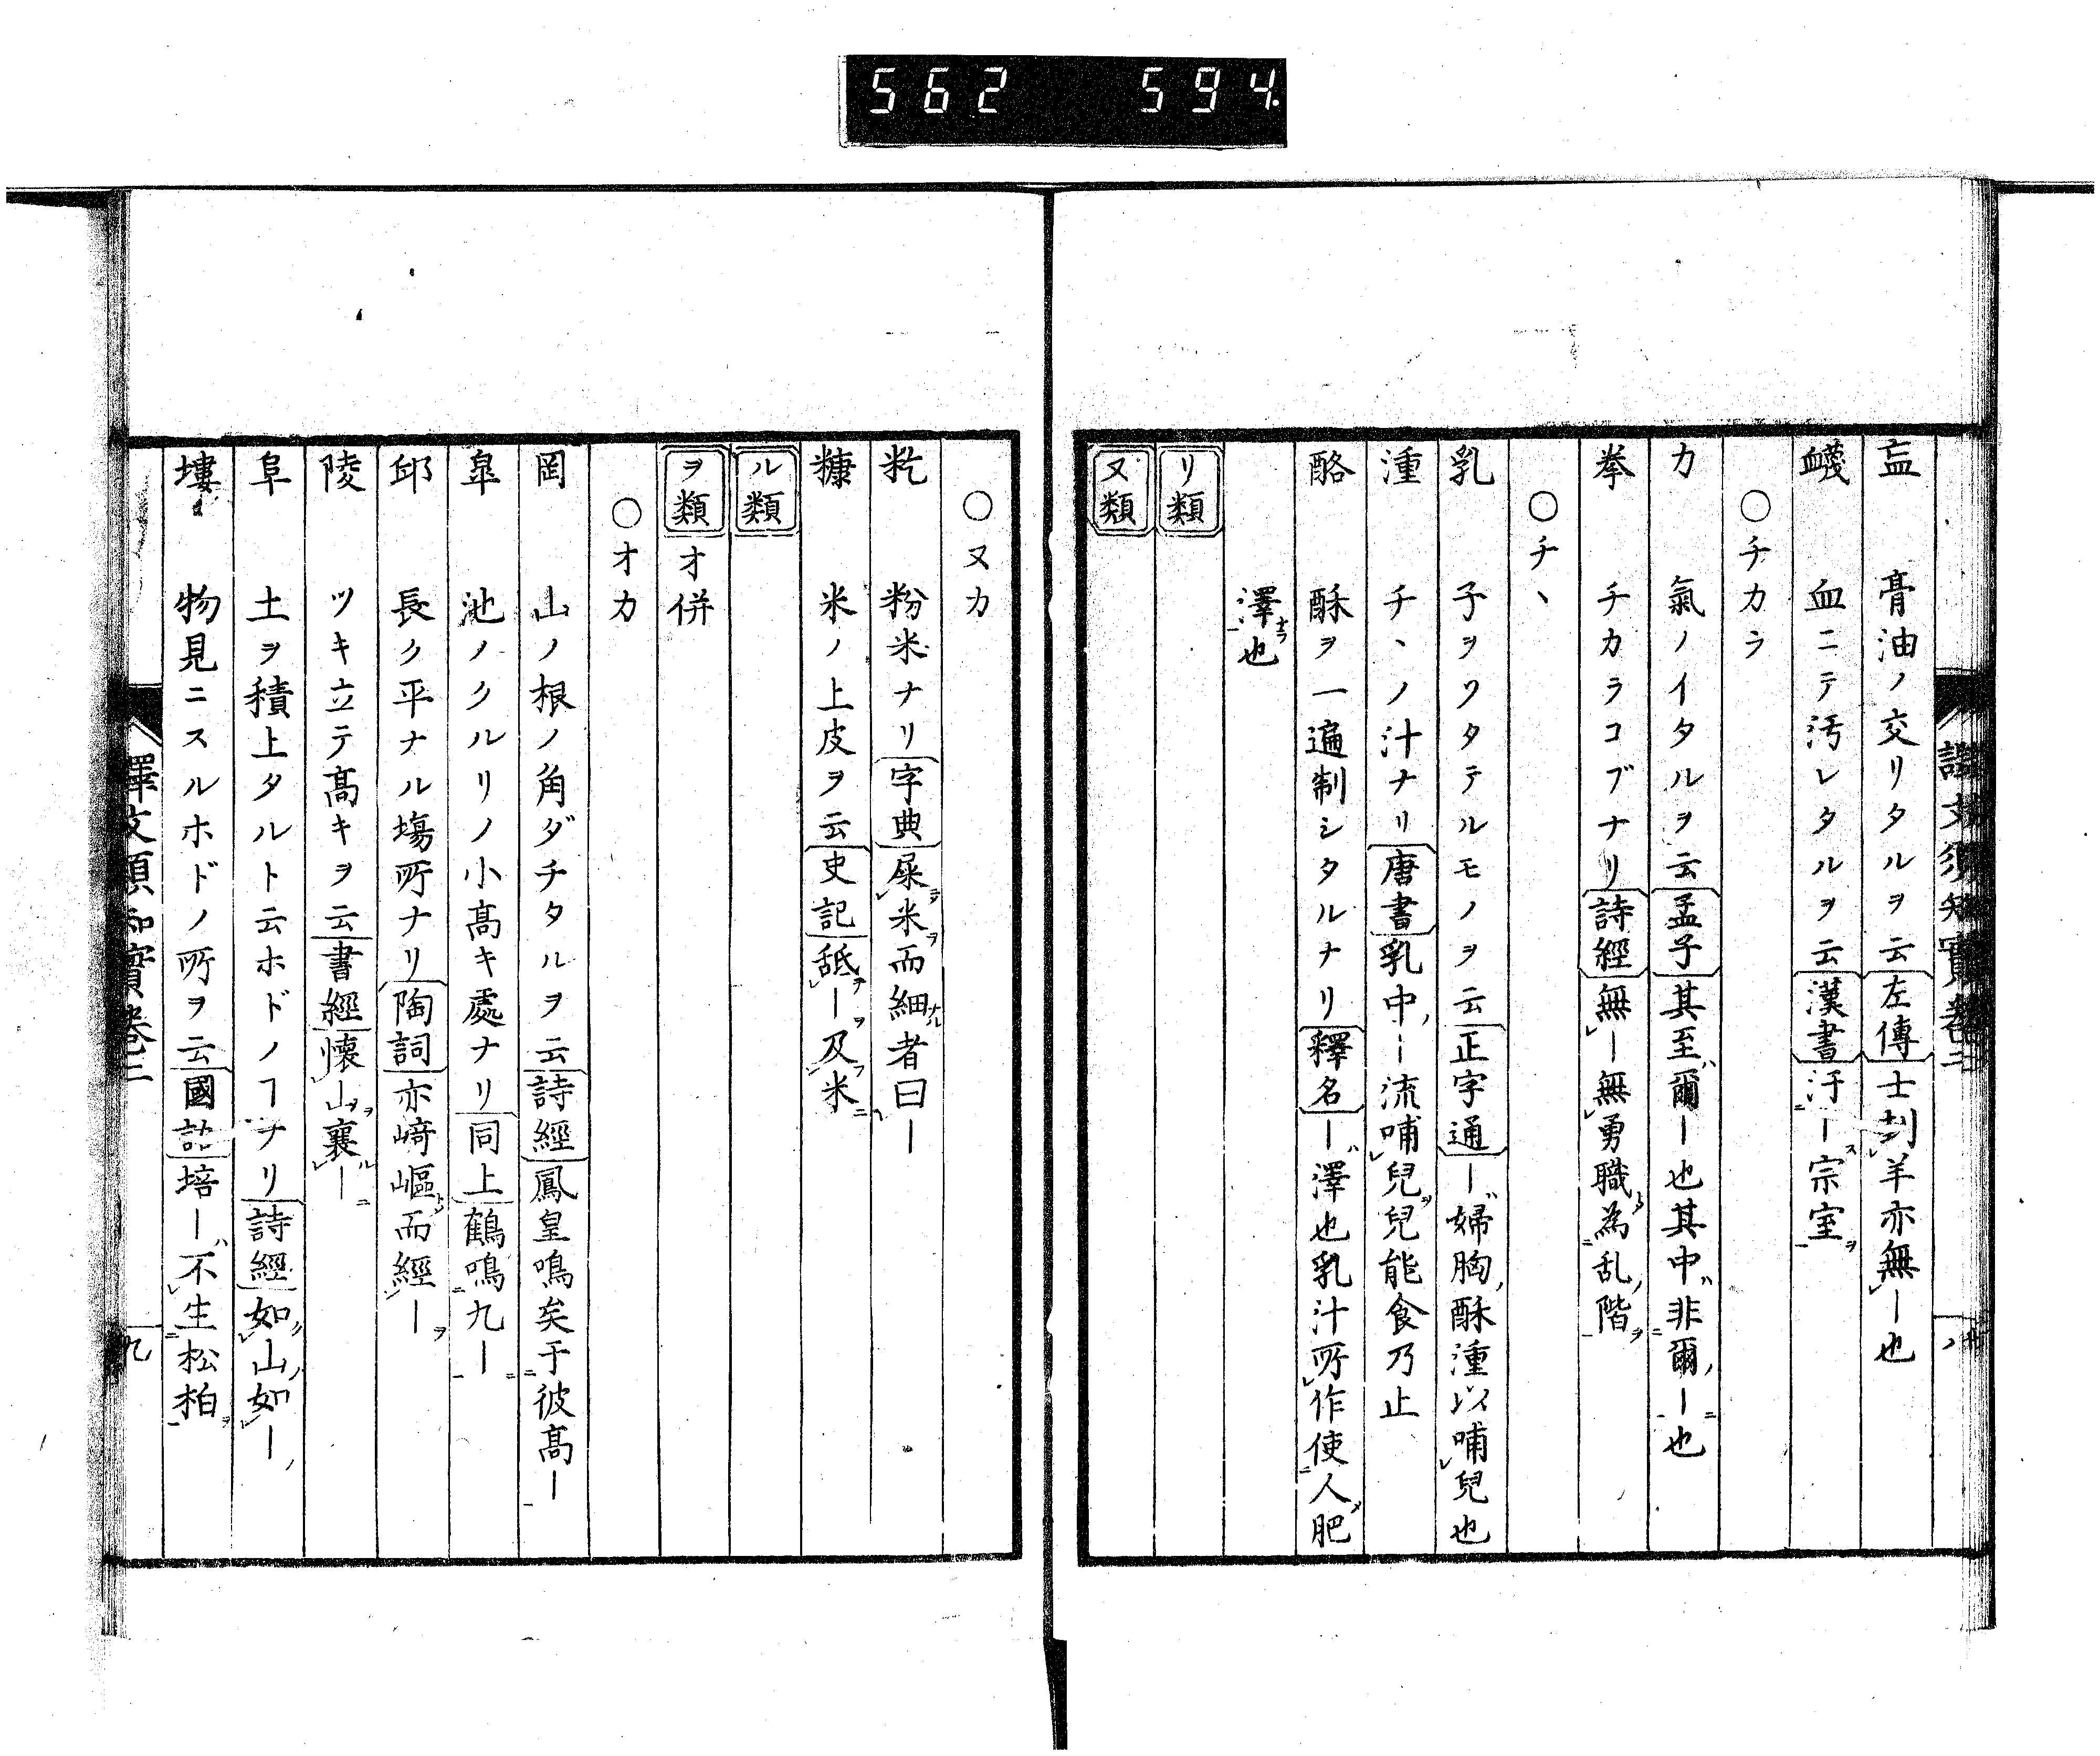 562 594
譯文須知實卷二
衁 膏油ノ交リタルヲ云左傳士刲羊亦無ー也
衊 血ニテ汚レタルヲ云漢書汙ー宗室
○チカラ
力 氣ノイタルヲ云孟子其至爾ー也其中非爾ー也
拳 チカラコブナリ詩經無ー無勇職為乱階
○チヽ
乳 子ヲソタテルモノヲ云正字通ー婦胸酥湩以哺兒也
湩 チヽノ汁ナリ唐書乳中ー流哺兒兒能食乃止
酪 酥ヲ一遍制シタルナリ釋名ー澤也乳汁所作使人肥
澤也
リ類
ヌ類
○ヌカ
籺 粉米ナリ字典屎米而細者曰ー
糠 米ノ上皮ヲ云史記舐ー及米
ル類
ヲ類 オ併
○オカ
岡 山ノ根ノ角ダチタルヲ云詩經鳳皇鳴矣于彼高ー
皐 池ノクルリノ小高キ處ナリ同上鶴鳴九ー
邱 長ク平ナル塲所ナリ陶詞亦﨑嶇而經ー
陵 ツキ立テ高キヲ云書經懷山襄ー
阜 土ヲ積上タルト云ホドノヿナリ詩經如山如ー
塿 物見ニスルホドノ所ヲ云國語培ー不生松柏
譯文須知實卷二
九